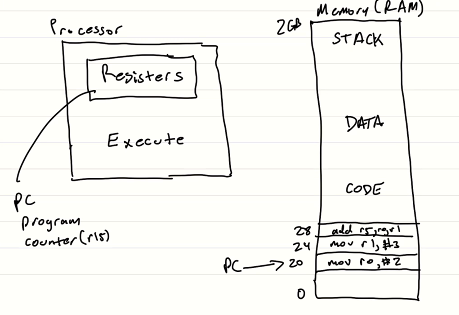 Processor
Registers
Execute
PC
program
counter(r15)
Memory (RAM)
2GB
STACK
DATA
CODE
28 add r5,r0,r1
24 mov r1,#3
PC → 20 mov r0,#2
0